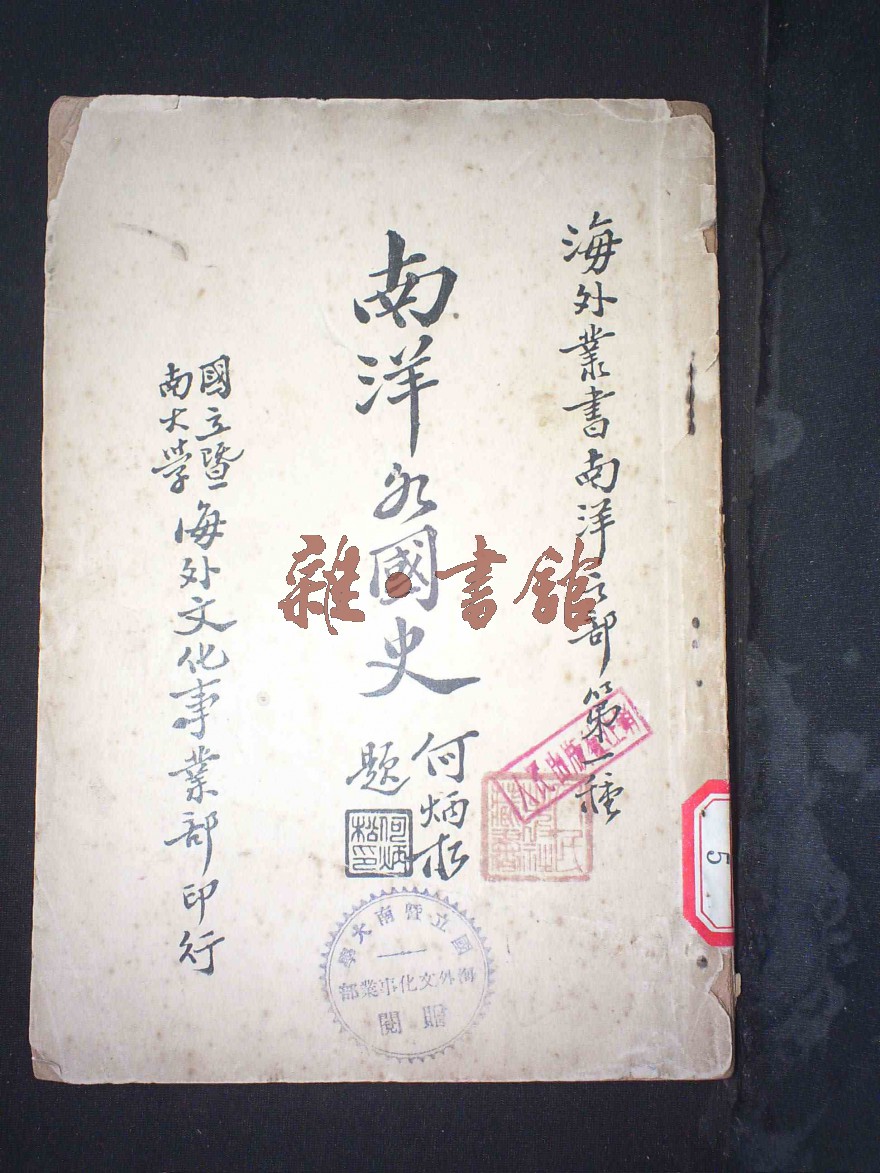 海外叢書南洋之部第一種
南洋各國史
何炳松
題
何炳松印
國立暨南大學
海外文化事業部印行
國立暨南大學
海外文化事業部
贈閱
雜·書館
5